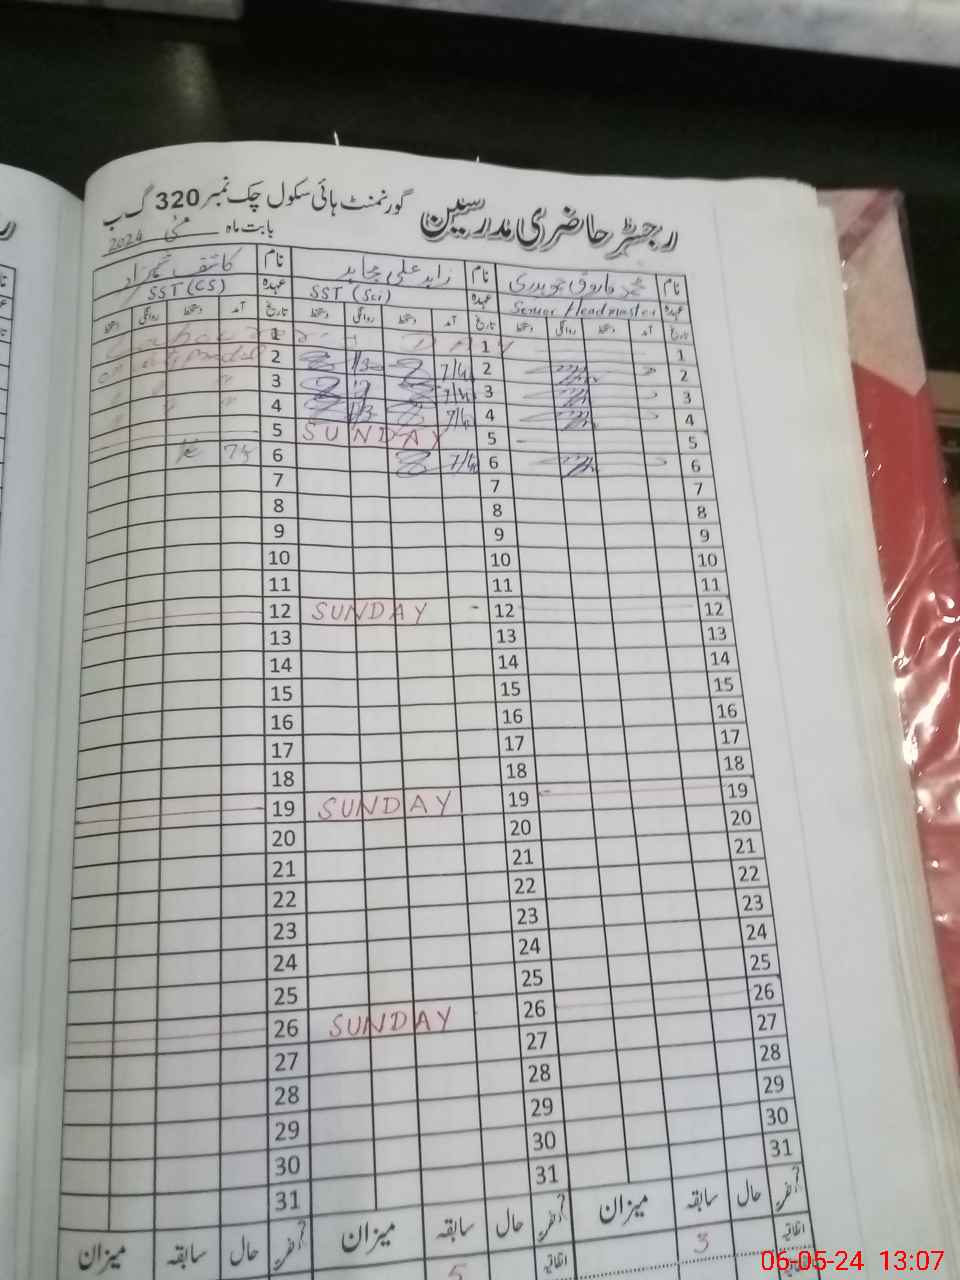 رجسٹر حاضری مدرسین گورنمنٹ ہائی سکول چک نمبر 320 گ ب
بابت ماہ مئی 2024
نام محمد فاروق چوہدری نام زاہد علی مجاہد نام کاشف شہزاد
عہدہ Senior Headmaster عہدہ SST (Sci) عہدہ SST (CS)
تاریخ آمد دستخط روانگی دستخط تاریخ آمد دستخط روانگی دستخط تاریخ آمد دستخط روانگی دستخط
1 1 Labour DAY 1
2 2 7/4 2
3 3 7/4 3
4 4 7/4 4
5 5 SUNDAY 5
6 6 7/4 6
7 7 7
8 8 8
9 9 9
10 10 10
11 11 11
12 12 SUNDAY 12
13 13 13
14 14 14
15 15 15
16 16 16
17 17 17
18 18 18
19 19 SUNDAY 19
20 20 20
21 21 21
22 22 22
23 23 23
24 24 24
25 25 25
26 26 SUNDAY 26
27 27 27
28 28 28
29 29 29
30 30 30
31 31 31
حال سابقہ میزان حال سابقہ میزان حال سابقہ میزان
اتفاقیہ 3 اتفاقیہ 5
06-05-24 13:07